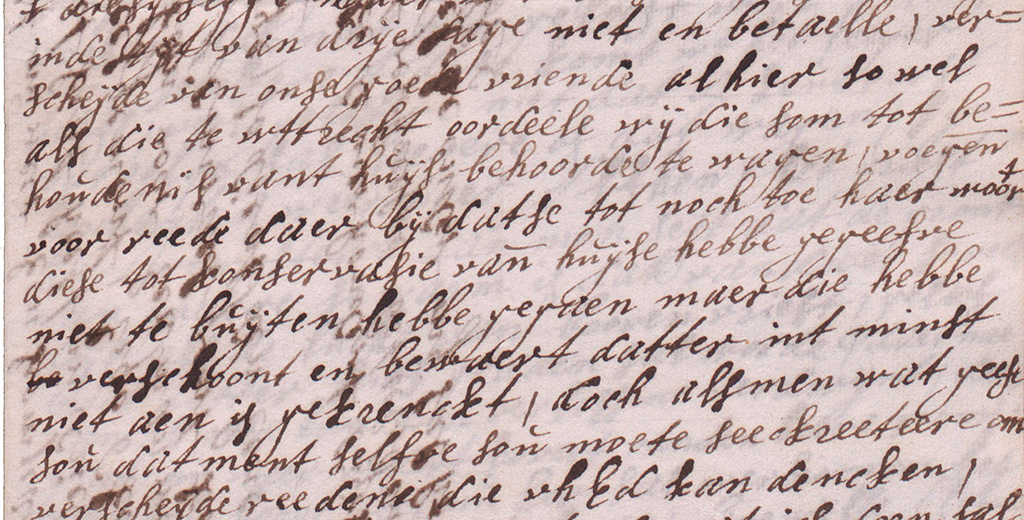 inde tijt van drije dage niet en betaelle, ver=
scheyde van onse goede vriende alhier so wel
als die te wttrecht oordeele wij die som tot be=
houdenis vant huijs behoorde te wagen, voegen
voor reede daer bij datse tot noch toe haer woort
diese tot konservasie van huijse hebbe gegeefve
niet te buijten hebbe gegaen maer die hebbe
verschoont en bewaert datter int minst
niet aen is gekrenckt, doch alsmen wat geefe
sou dat ment selfve sou moete seeckreeteere om
verscheyde reedene die vhEd kan dencken,